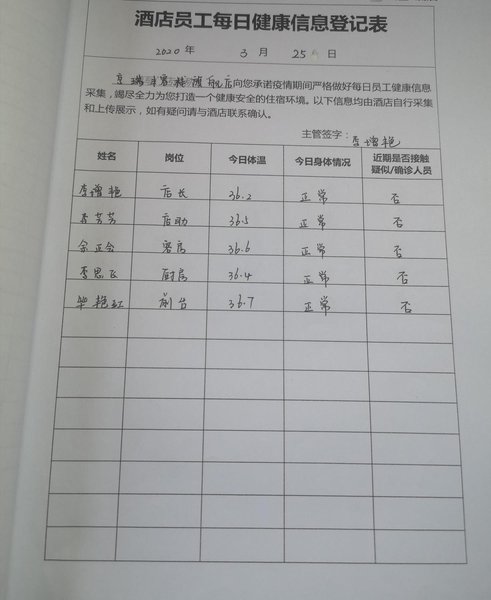 酒店员工每日健康信息登记表
2020 年 3 月 25 日
向您承诺疫情期间严格做好每日员工健康信息
采集，竭尽全力为您打造一个健康安全的住宿环境。以下信息均由酒店自行采集
和上传展示，如有疑问请与酒店联系确认。
主管签字：李增艳
姓名 岗位 今日体温 今日身体情况 近期是否接触
疑似/确诊人员
李增艳 店长 36.2 正常 否
李芳芳 店助 36.5 正常 否
客房 36.6 正常 否
李思 厨房 36.4 正常 否
毕艳红 前台 36.7 正常 否